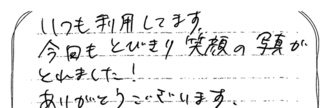 いつも利用してます。
今回もとびきり笑顔の写真が
とれました！
ありがとうございます。